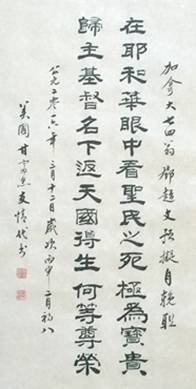 加拿大七四翁鄧超文預擬自輓聯
在耶和華眼中看聖民之死極為寶貴
歸主基督名下返天國得生何等尊榮
公元二零一六年三月十二日歲次丙申二月初八
美國甘雲烝友情代書